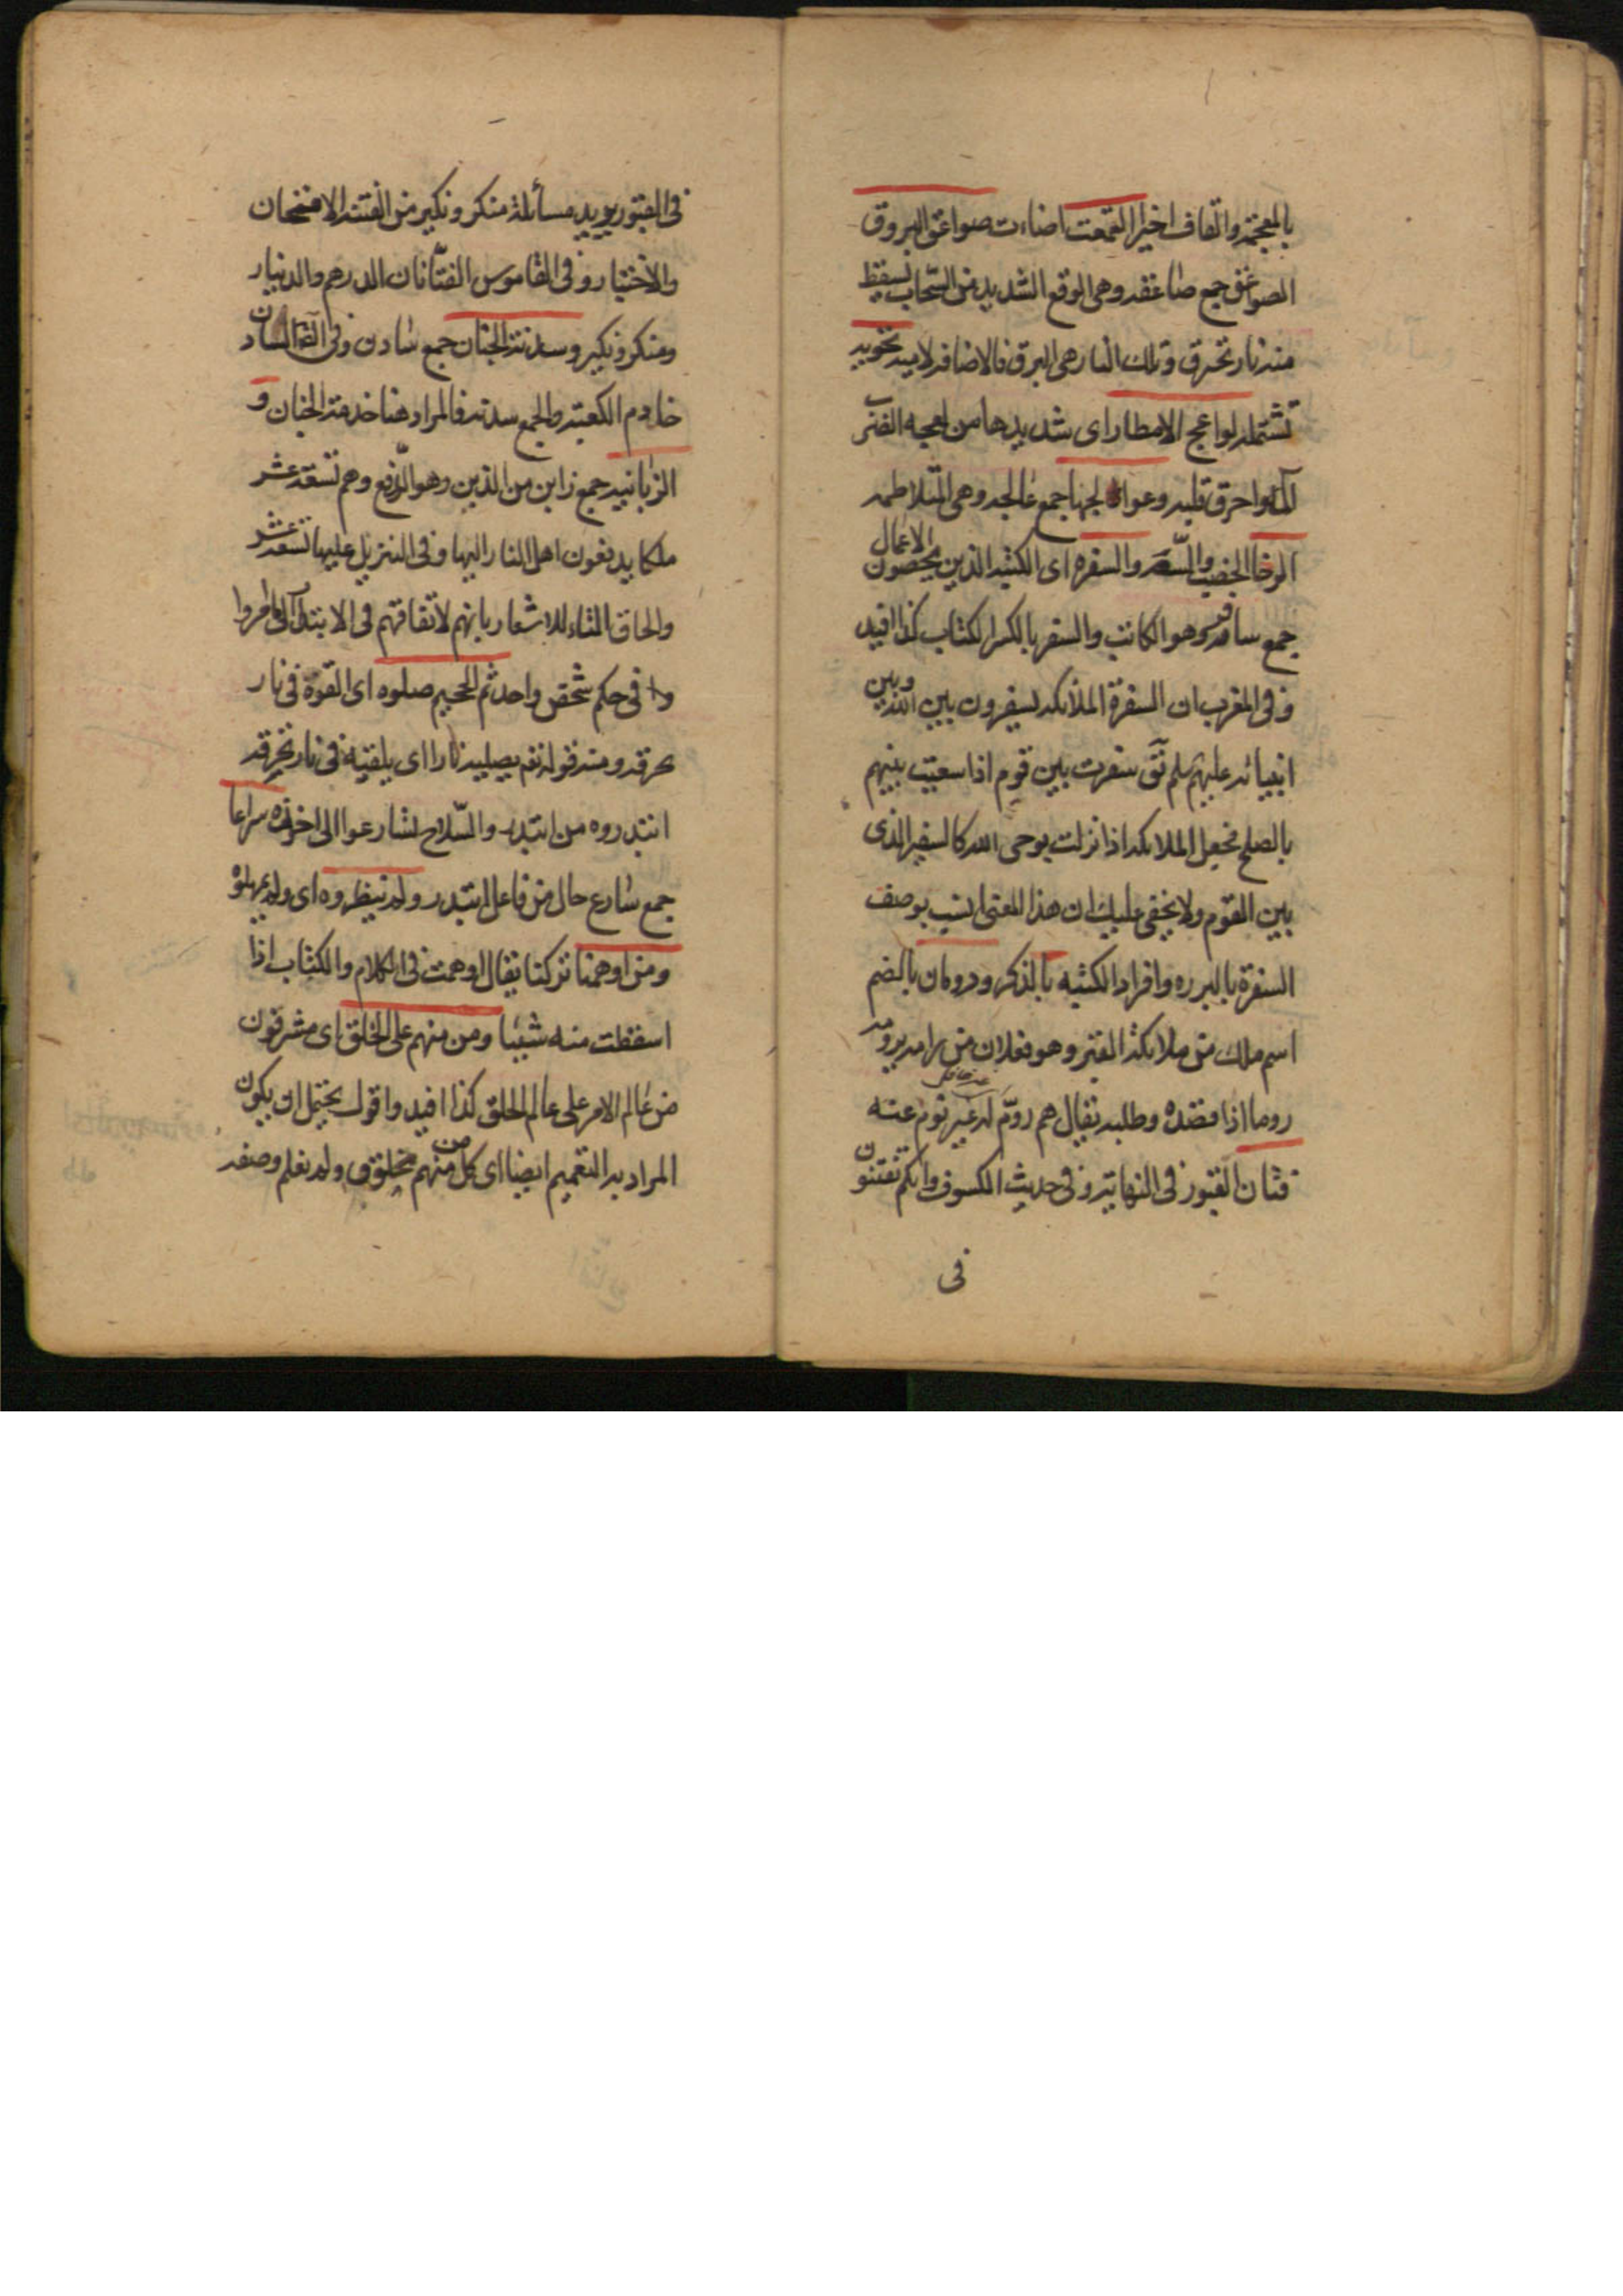 بالمعجمة والقاف اخيرا التمعت اضاءت صواعق البروق
الصواعق جمع صاعقة وهى الوقع الشديد من السحاب يسقط
منه نار تحرق وتلك النار هى البرق فالاضافة لامية تحويه
تشتمله لواعج الامطار اى شديدها من لعجه الضرب
آلمه واحرق قلبه وعوالجها جمع عالجه وهى المتلاطمه
الرخا الخصب والسعه والسفره اى الكتبه الذين يحصون الاعمال
جمع سافر وهو الكاتب والسفر بالكسر الكتاب كذا افيد
وفى المغرب ان السفرة الملائكه يسفرون بين الله وبين
انبيائه عليهم سلم تق سفرت بين قوم اذا سعيت بينهم
بالصلح فجعل الملائكه اذا نزلت بوحى الله كالسفير الذى
بين القوم ولا يخفى عليك ان هذا المعنى انسب بوصف
السفرة بالبرره وافراد الكتبه بالذكر ورومان بالضم
اسم ملك من ملائكة القبر وهو فعلان من رامه يرومه
روما اذا قصده وطلبه يقال هم روّم له غير نوم عنه
فتان القبور فى النهاية وفى حديث الكسوف وانكم تفتنون
فى
فى القبور يريد مسائلة منكر ونكير من الفتنة الامتحان
والاختبار وفى القاموس الفتّانان الدرهم والدينار
ومنكر ونكير وسدنة الجنان جمع سادن وفى السادن
خادم الكعبة والجمع سدنه فالمراد هنا خدمة الجنان و
الزبانية جمع زابن من الزبن وهو الدفع وهم تسعة عشر
ملكا يدفعون اهل النار اليها وفى التنزيل عليها تسعة عشر
والحاق التاء للاشعار بانهم لاتفاقهم فى الابتداء لما امروا
به فى حكم شخص واحد ثم الجحيم صلوه اى القوه فى نار
تحرقه ومنه قوله تعم يصليه نارا اى يلقيه فى نار تحرقه
ابتدروه من ابتدر والسلاح تسارعوا الى اخذه سراعا
جمع سارع حال من فاعل ابتدر ولم ينظروه اى ولم يمهلوه
ومن اوهمنا تركنا يقال اوهمت فى الكلام والكتاب اذا
اسقطت منه شيئا ومن منهم على الخلق اى مشرفون
من عالم الامر على عالم الخلق كذا افيد واقول يحتمل ان يكون
المراد به التعميم ايضا اى كل من منهم مخلوق ولم نعلم وصفه